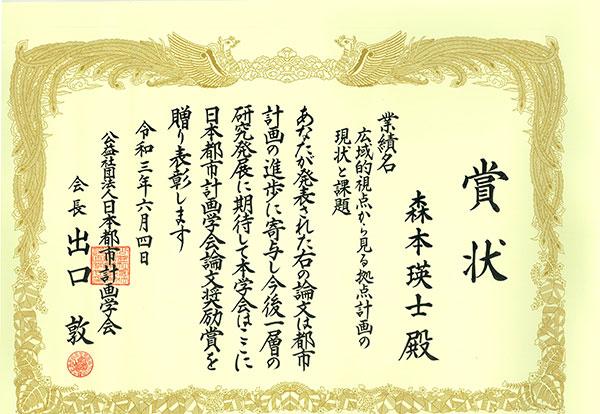 賞状
森本瑛士殿
業績名
広域的視点から見る拠点計画の
現状と課題
あなたが発表された右の論文は都市
計画の進歩に寄与し今後一層の
研究発展に期待して本学会はここに
日本都市計画学会論文奨励賞を
贈り表彰します
令和三年六月四日
公益社団法人日本都市計画学会
会長 出口敦